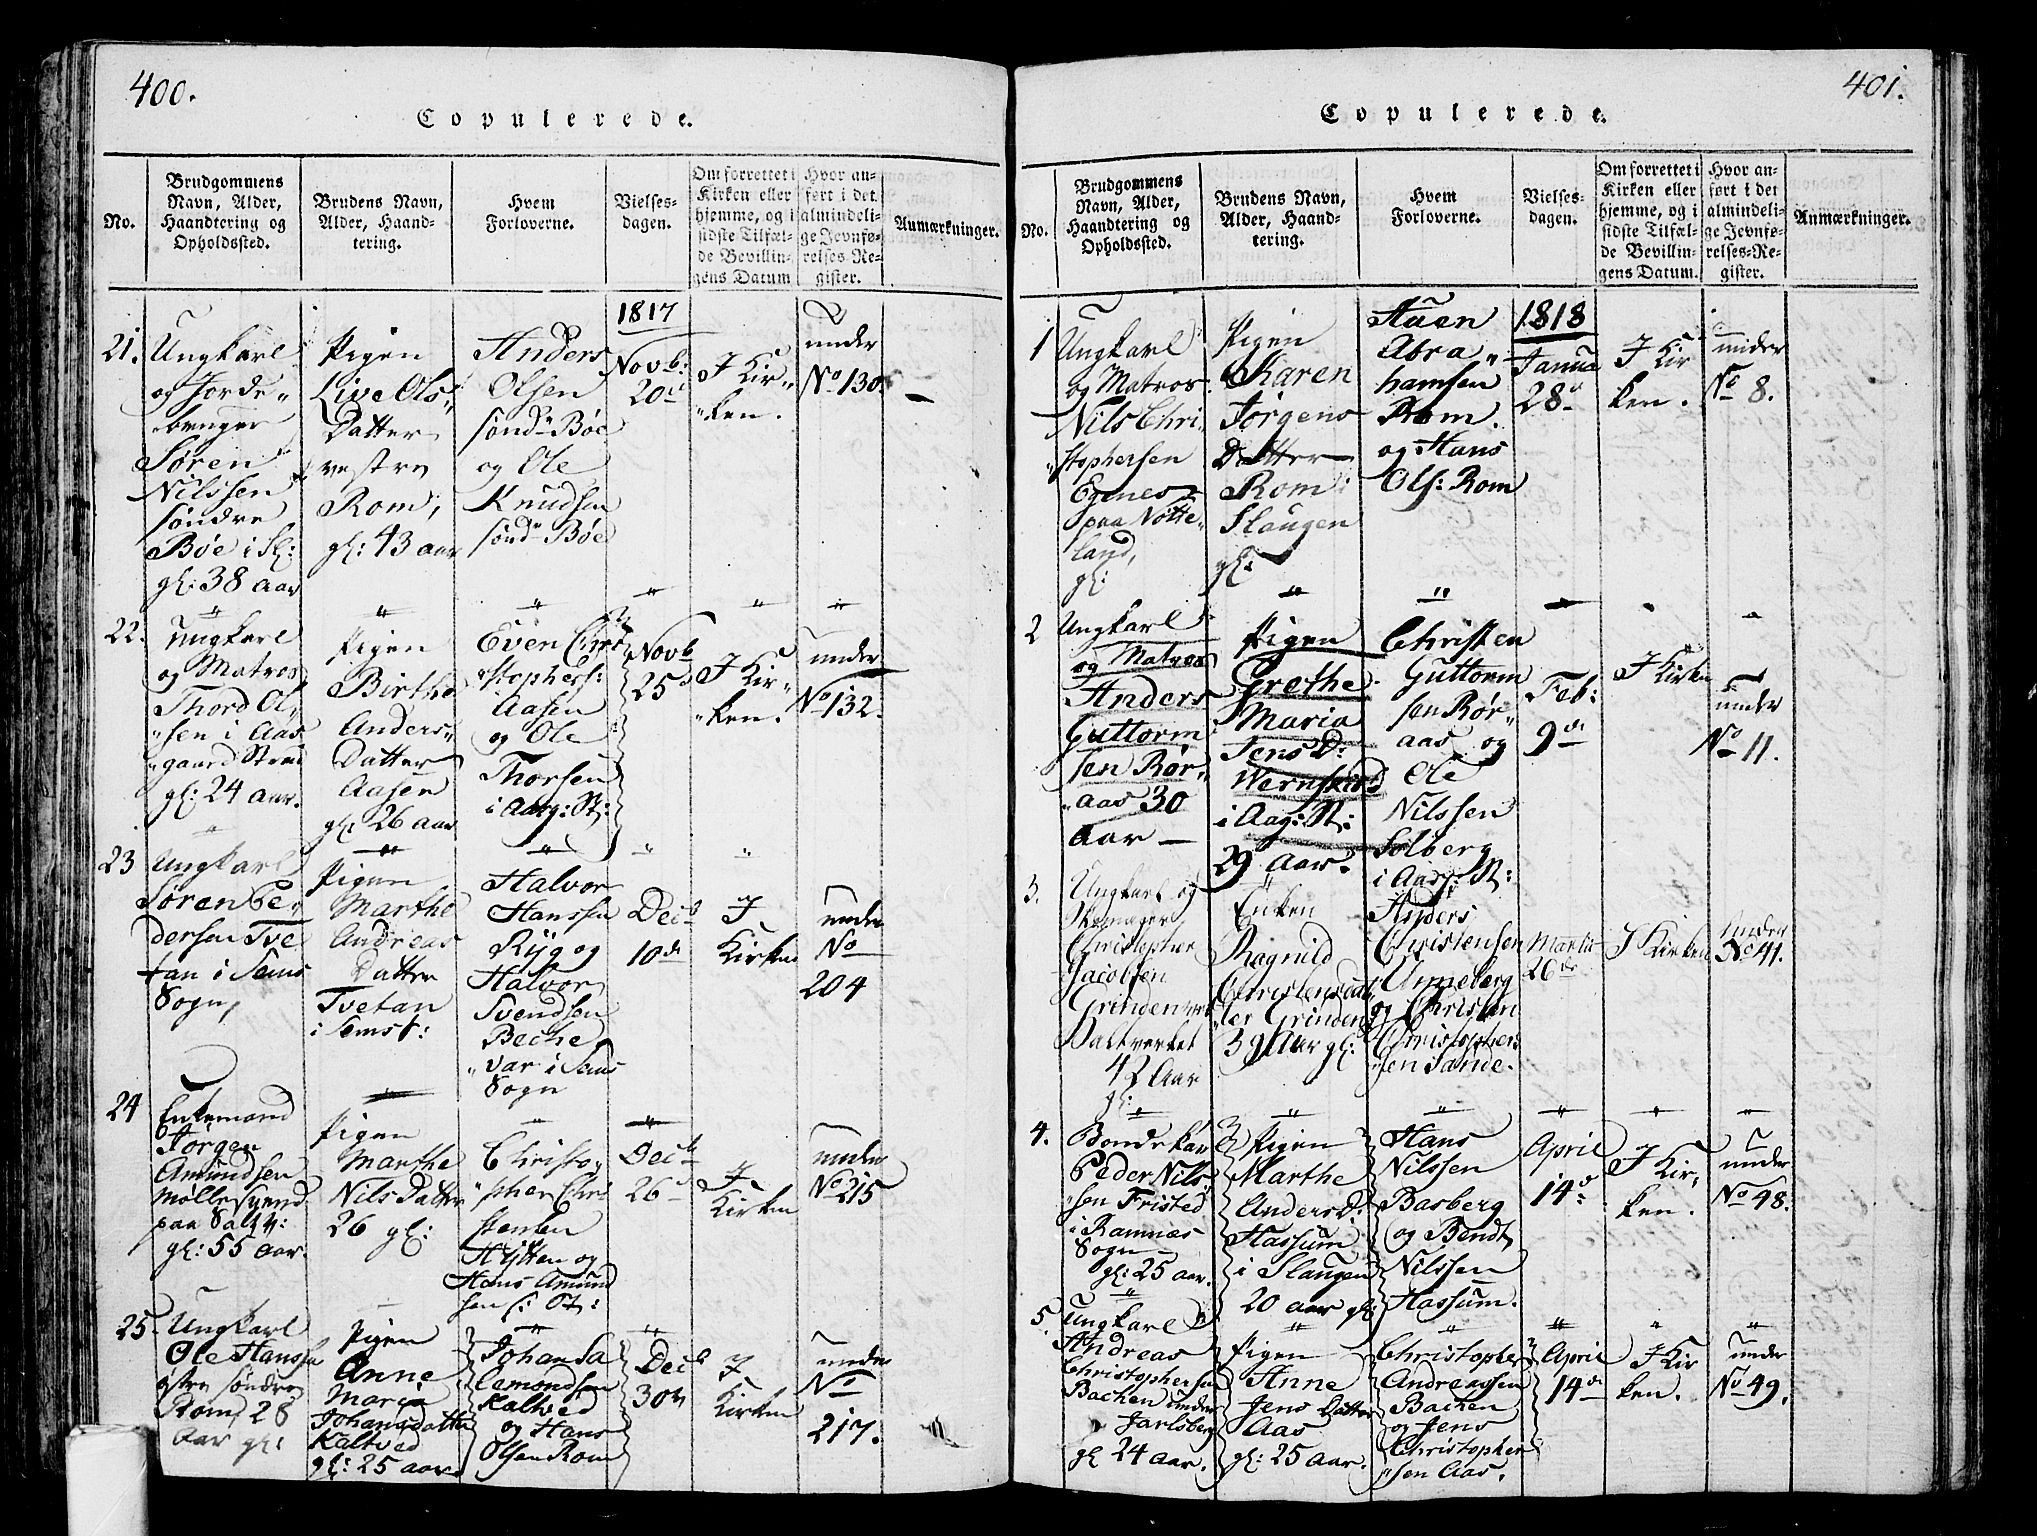 400.
Copulerede.
No.
Brudgommens
Navn, Alder,
Haandtering og
Opholdssted.
Brudens Navn,
Alder, Haand-
tering.
Hvem
Forloverne.
Vielses-
dagen.
Om forrettet i
Kirken eller
hjemme, og i
sidste Tilfæl-
de Bevillin-
gens Datum
Hvor an-
ført i det
almindeli-
ge Jevnfø-
relses-Re-
gister.
Anmærkninger.
1817
21.
Ungkarl
og Jorde„
bruger
Søren
Nilssen
søndre
Bøe i Sl:
gl: 38 aar
Pigen
Live Ols„
Datter
vestre
Rom,
gl: 43 aar
Anders
Olsen
sønd Bøe
og Ole
Knudsen
sønd Bøe
Novb:
20d
I Kir„
„ken.
under
No 130
22.
Ungkarl
og Matros
Thord Ol„
„sen i Aas
„gaard Strand
gl: 24 aar.
Pigen
Birthe
Anders„
Datter
Aasen
gl. 26 aar
Even Chri
„stophers:
Aasen
og Ole
Thorsen
i Aasg: St:
Novb
25d
I Kir„
„ken.
under
No 132.
23
Ungkarl
Søren Pe„
dersen Tve
tan i Sems
Sogn,
Pigen
Marthe
Andreas
Datter
Tvetan
i Sems S:
Halvor
Hanssen
Ryg og
Halvor
Svendsen
Beche
„var i Sems
Sogn
Decb
10de
I
Kirken
under
No
204
24
Enkemand
Jørgen
Amundsen
Møllesvend
paa Saltv:
gl: 55 aar.
Pigen
Marthe
Nils Datter
26 gl:
Christo„
„pher Chri
stensen
Hytten og
Hans Amund
sen S: St:
Decb
26d
I
Kirken
under
No 215
25.
Ungkarl
Ole Hanssen
søndre
Rom, 28
Aar gl:
Pigen
Anne
Maria
Johansdatter
Kaltved
gl: 25 aar
Johan Sa
lemondsen
Kaltved
og Hans
Olsen Rom
Decb
30te
I
Kirken
under
No
217.
401.
Copulerede.
No.
Brudgommens
Navn, Alder,
Haandtering og
Opholdssted.
Brudens Navn,
Alder, Haand-
tering.
Hvem
Forloverne.
Vielses-
dagen.
Om forrettet i
Kirken eller
hjemme, og i
sidste Tilfæl-
de Bevillin-
gens Datum.
Hvor an-
ført i det
almindeli-
ge Jevnfø-
relses-Re-
gister.
Anmærkninger.
1818
1
Ungkarl
og Matros
Nils Chri„
„stophersen
Egenes
paa Nøtte„
land,
gl:
Pigen
Karen
Jørgens
Datter
Rom i
Slaugen
gl:
Abra„
hamsen
Rom.
og Hans
Ols: Rom
Janua
28d
I Kir
ken.
under
No 8.
2
Ungkarl
og Matros
Anders
Guttorm
sen Rør„
„aas 30
aar —
Pigen
Grethe
Maria
Jens D:
Wernskild
i Aag: St:
29 Aar.
Christen
Guttorm
sen Rør„
aas og
Ole
Nilssen
Solberg
i Aasg: St:
Feb:
9de
I Kirken
under
No 11.
3.
Ungkarl og
Skomager
Christopher
Jacobsen
Grinden
Saltverket
42 Aar
gl:
Enken
Ragnild
Christensdat
ter Grinden
39 Aar gl:
Anders
Christensen
Unneberg
og Christen
Christopher
„sen Sande.
Martii
26de
I Kirken
under
No 41.
4.
Bondekar
Peder Nils„
„sen Fristed
i Ramnæs
Sogn
gl: 25 aar.
Pigen
Marthe
Anders D:
Hassum
i Slaugen
20 aar gl:
Hans
Nilssen
Basberg
og Bendt
Nilssen
Hassum.
April
14d
I Kir„
ken.
under
No 48.
5.
Ungkarl
Andreas
Christophersen
Bachen under
Jarlsberg
gl 24 aar.
Pigen
Anne
Jens Datter
Aas
gl: 25 aar.
Christopher
Andreassen
Bachen
og Jens
Christopher
„sen Aas.
April
14de
I Kir
ken.
under
No 49.